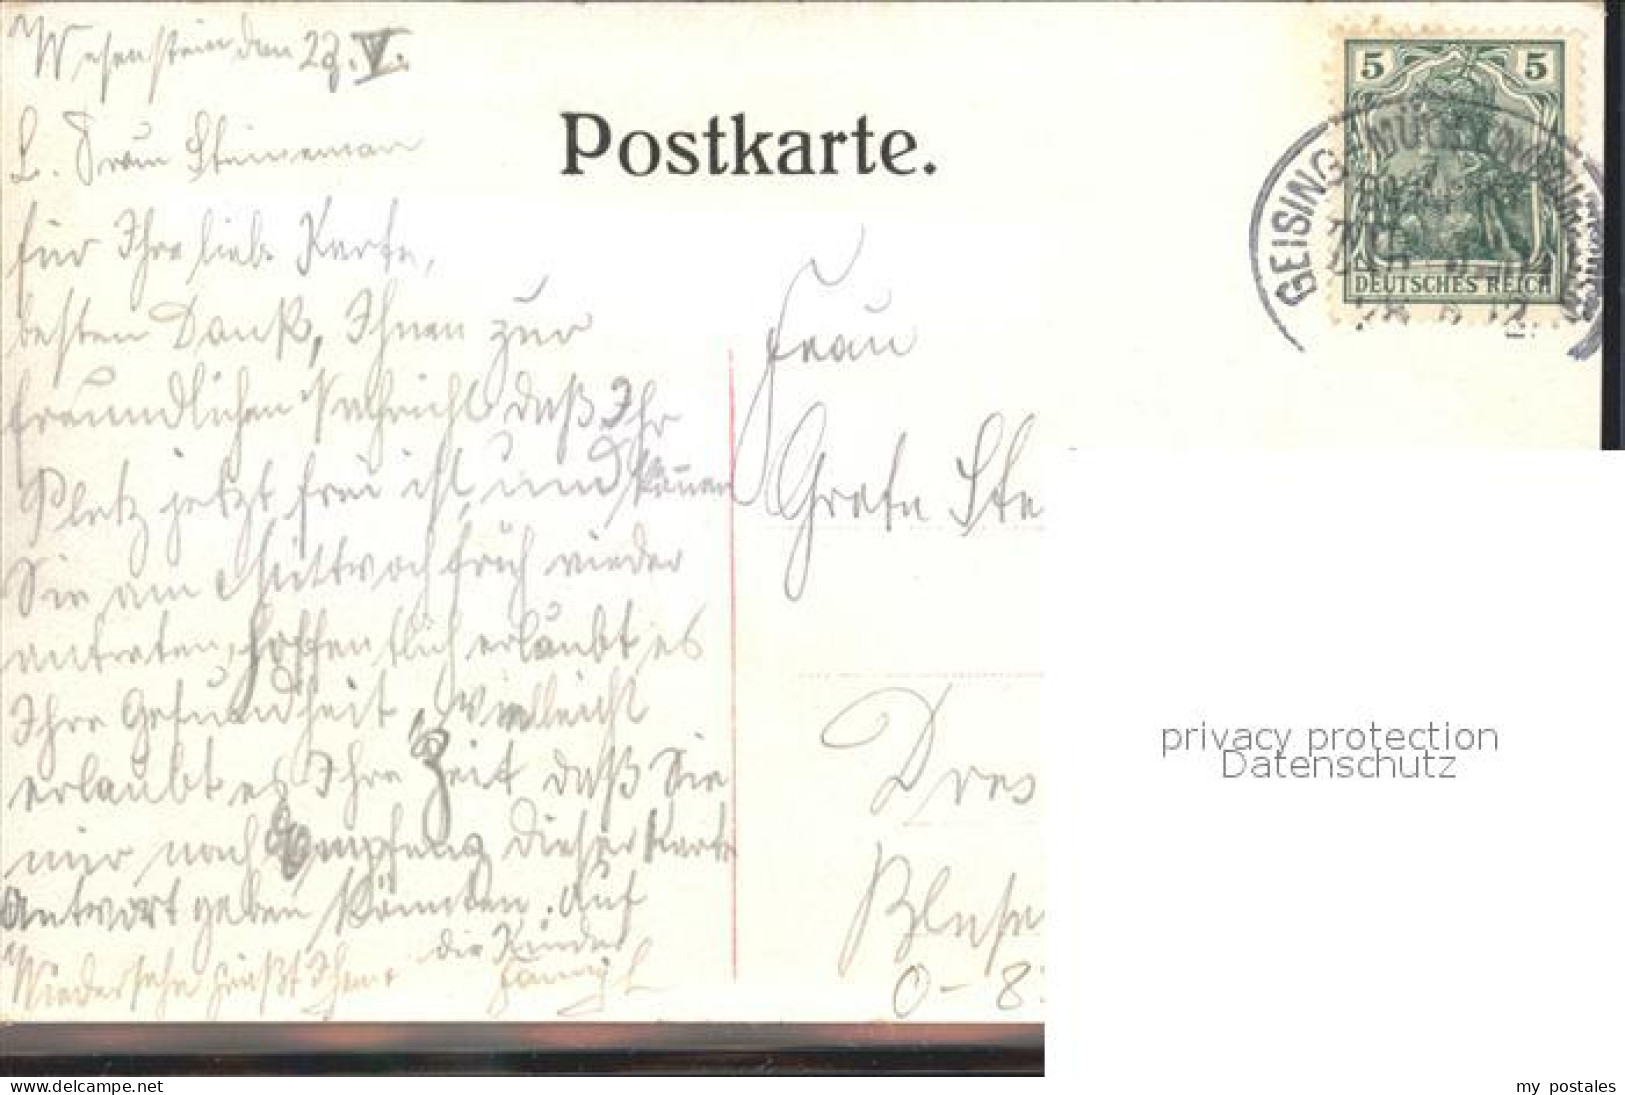 Wesenstein den 23. V.
L. Frau Steineman
für Ihre liebe Karte,
besten Dank, Ihnen zur
freundlichen Nachricht daß Ihr
Platz jetzt frei ist, und können
Sie am Mittwoch früh wieder
antreten, hoffentlich erlaubt es
Ihre Gesundheit, vielleicht
erlaubt es Ihre Zeit daß Sie
mir nach Empfang dieser Karte
Antwort geben könnten. Auf
Wiedersehn grüßt Ihnen
die Kinder
Postkarte.
5 5
DEUTSCHES REICH
GEISING - MÜGELN
Frau
Grete Ste
Dres
Blase
0-8
privacy protection
Datenschutz
www.delcampe.net
my postales